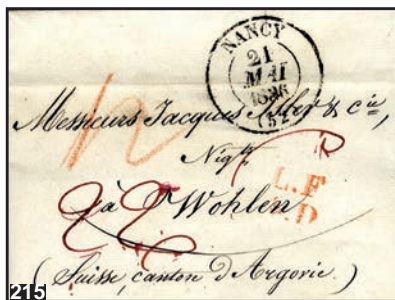 NANCY
21
MAI
1836
(52)
Messieurs Jacques & cie,
Nigts
L.F
à Wohlen
(Suisse, canton d'Argovie.)
215